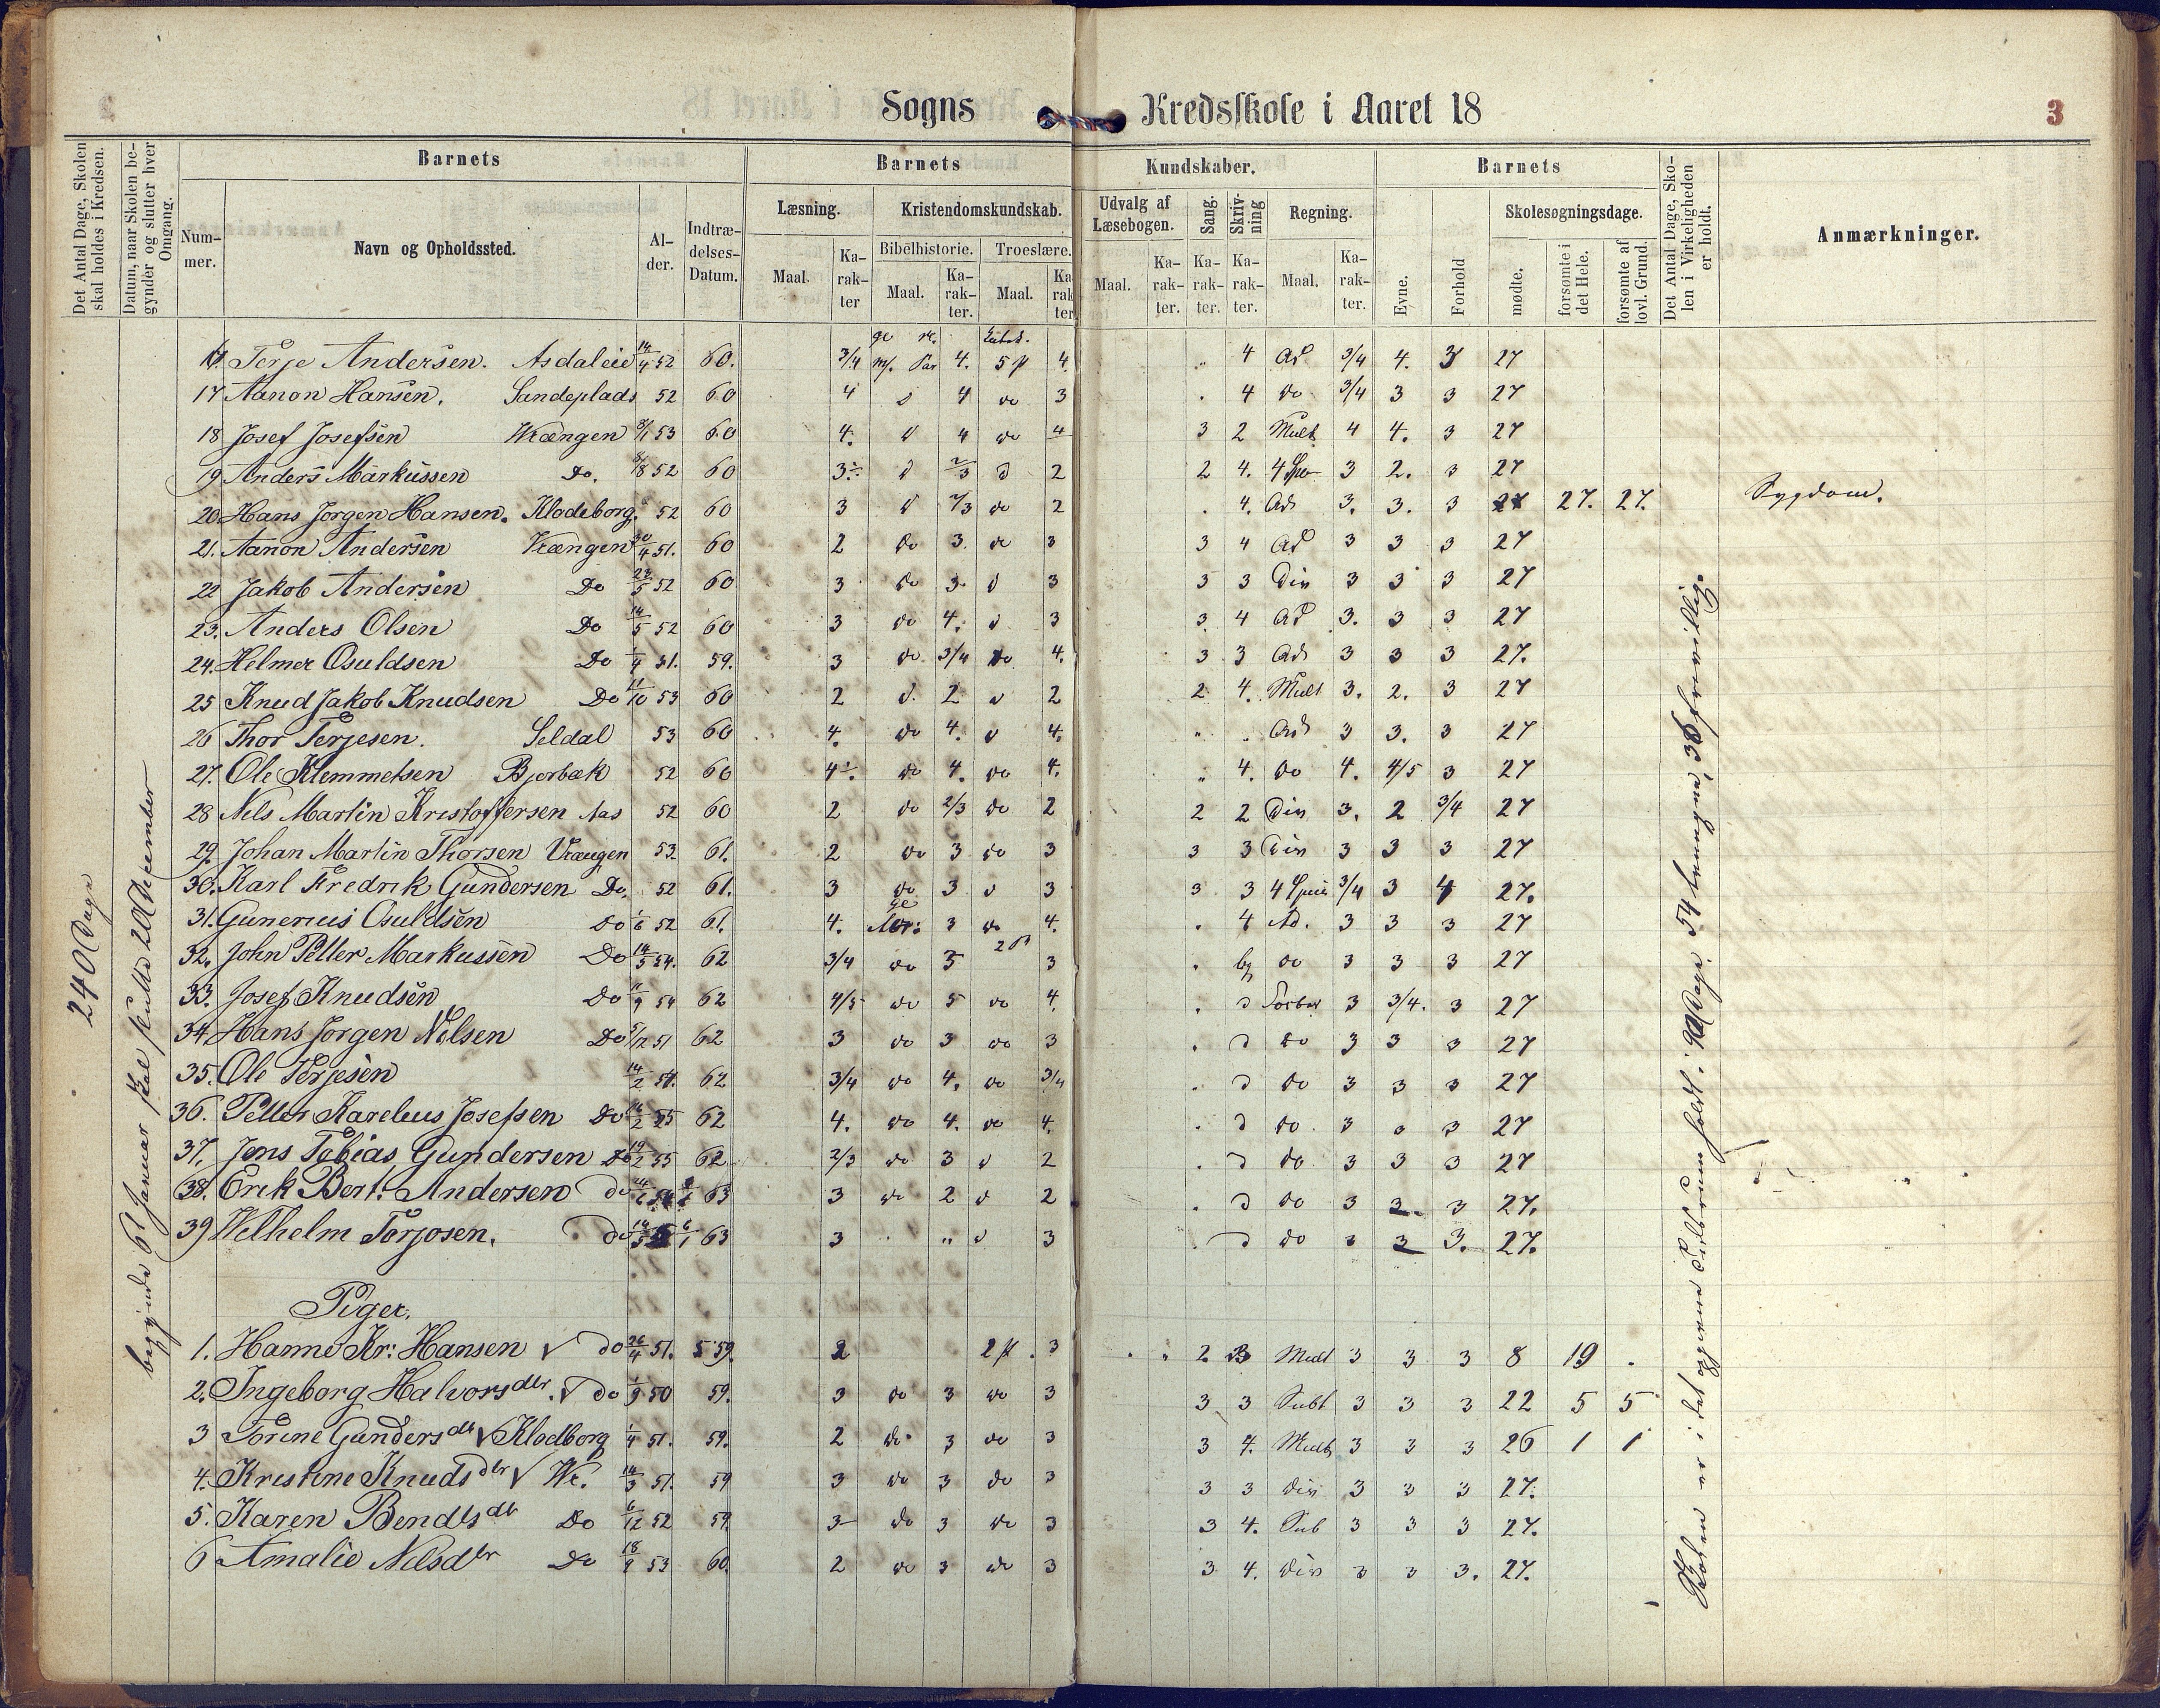 Sogns Kredsskole i Aaret 18 3
Det Antal Dage, Skolen skal holdes i Kredsen.
Datum, naar Skolen begynder og slutter hver Omgang.
Barnets Barnets Kundskaber. Barnets
Det Antal Dage, Skolen i Virkeligheden er holdt.
Anmærkninger.
Nummer. Navn og Opholdssted. Alder. Indtrædelses-Datum.
Læsning. Kristendomskundskab. Udvalg af Læsebogen. Sang. Skrivning Regning. Evne. Forhold Skolesøgningsdage.
Maal. Karakter Bibelhistorie. Troeslære. Maal. Karakter. Karakter. Karakter. Maal. Karakter. mødte. forsømte i det Hele. forsømte af lovl. Grund.
Maal. Karakter. Maal. Karakter
Terje Andersen. Asdaleie 14/4 52 60. 3/4 4. 5 4. 4 Ad 3/4 4. 3 27
17 Aanon Hansen. Sandeplads 52 60 4 4 do 3 4 do 3/4 3 3 27
18 Josef Josefsen Vrængen 53 60 4. 4 do 4 3 2 Mult 4 4. 3 27
19 Anders Markussen Do. 52 60 3 2/3 d 2 2 4. 4 3 2. 3 27
20 Hans Jørgen Hansen. Klodeborg. 52 60 3 2/3 do 2 4. Ad 3. 3. 3 27 27. 27. Sygdom.
21. Aanon Andersen Vrængen 30/4 51. 60 2 do 3. do 3 3 4 Ad 3 3 3 27
22 Jakob Andersen Do 23/5 52 60 3 do 3. d 3 3 3 Div 3 3 3 27
23. Anders Olsen Do 14/5 52 60 3 do 4. d 3 3 4 Ad 3. 3 3 27
24. Helmer Osuldsen Do 51. 59. 3 do 3/4 do 4. 3 3 Ad 3 3 3 27.
25 Knud Jakob Knudsen Do 11/10 53 60 2 d. 2 d 2 2 4. Mult 3. 2. 3 27
26 Thor Terjesen. Seldal 53 60 4. do 4. d 4. " . Ad 3 3. 3 27
27. Ole Klemmetsen Bjorbæk 52 60 4 do 4. do 4. " 4. do 4. 4/5 3 27
28 Nils Martin Kristoffersen Aas 52 60 2 do 2/3 do 2 2 2 Div 3. 2 3/4 27
29. Johan Martin Thorsen Vrængen 53 61. 2 do 3 do 3 3 3 Div 3 3 3 27
30. Karl Fredrik Gundersen Do. 52 61. 3 do 3 d 3 3 3 4 3/4 3 4 27.
31. Gunerius Osuldsen Do 52 61. 4. 3 do 4. . 4 Ad. 3 3 3 27
32. John Petter Markussen Do 14/5 54. 62 3/4 do 5 3 . do 3 3 3 27
33. Josef Knudsen Do 54 62 4/5 do 5 do 4. . d 3 3/4. 3 27
34. Hans Jørgen Nilsen Do 51 62 3 do 3 do 3 . d do 3 3 3 27
35. Ole Terjesen 14/2 54. 62 3/4 do 4. do 3/4 . d do 3 3 3 27
36. Petter Karelius Josefsen Do 55 62 4. do 4. do 4. . d do. 3 3 3 27
37. Jens Tobias Gundersen Do 19/2 55 62 2/3 do 3 d 2 . d do 3 3 3 27
38. Erik Bert. Andersen do 54 63 3 do 2 d 2 . d do 3 3. 3 27.
39 Wilhelm Torjosen. do 6/1 63 3 " d 3 d do 3 3 3. 27.
Piger.
1. Hanne Kr: Hansen do 26/4 51. 59. 2 2 3 . . 2. 3 Mult 3 3 3 8 19 .
2. Ingeborg Halvorsdtr. do 50 59. 3 do 3 do 3 3 3 Subt 3 3 3 22 5 5
3 Torine Gundersdtr Klodborg 1/4 51. 59. 2 do 3 do 3 3 4. Mult 3 3 3 26 1 1
4. Kristine Knudsdtr Vr. 14/3 51. 59 3 do 3 do 3 3 3 Div 3 3 3 27.
5. Karen Bendtsdtr Do 6/12 52 59. 3 do 3 do 3 3 4. Sub 3 3 3 27.
6 Amalie Nilsdtr Do 18/9 53 60. 2 do 3 do 3 3 4. Div 3 3 3. 27.
240 Dage
begynde 6t Januar skal slutte 20 December
Skolen er i det Tidsrum holdt: 90 Dage. 54 tvungne, 36 frivillig.